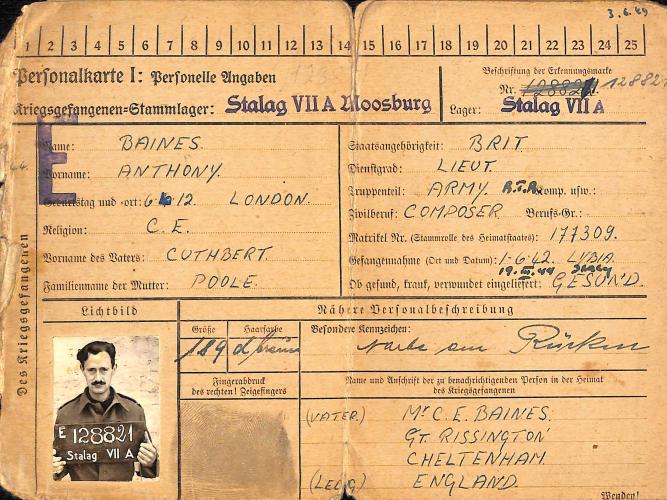 3.6.49
1 2 3 4 5 6 7 8 9 10 11 12 13 14 15 16 17 18 19 20 21 22 23 24 25
Personalkarte I: Personelle Angaben
Kriegsgefangenen=Stammlager: Stalag VII A Moosburg
Beschriftung der Erkennungsmarke
Nr. 128821 128821
Lager: Stalag VII A
E
Name: BAINES.
Vorname: ANTHONY.
Geburtstag und =ort: 6 12. LONDON.
Religion: C.E.
Vorname des Vaters: CUTHBERT.
Familienname der Mutter: POOLE.
Staatsangehörigkeit: BRIT.
Dienstgrad: LIEUT.
Truppenteil: ARMY. R.T.R. Komp. usw.:
Zivilberuf: COMPOSER Berufs=Gr.:
Matrikel Nr. (Stammrolle des Heimatstaates): 177309.
Gefangennahme (Ort und Datum): 1-6-42. LYBIA.
19.III.44
Ob gesund, krank, verwundet eingeliefert: GESUND.
Des Kriegsgefangenen
Lichtbild
Nähere Personalbeschreibung
Größe
Haarfarbe
Besondere Kennzeichen:
189
d'braun
Narbe am Rücken
Fingerabdruck
des rechten! Zeigefingers
Name und Anschrift der zu benachrichtigenden Person in der Heimat
des Kriegsgefangenen
(VATER.) Mr C.E. BAINES.
GT. RISSINGTON
CHELTENHAM.
(LEDIG) ENGLAND.
Wenden!
E 128821
Stalag VII A